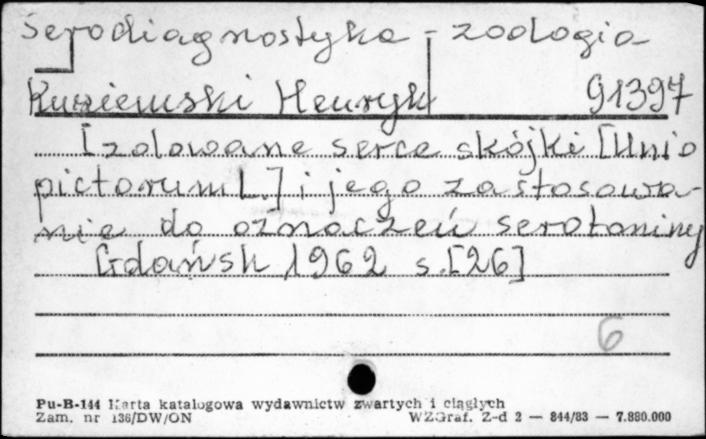 Serodiagnostyka - zoologia
Kuniewski Henryk 91397
Izolowane serce skójki [Unio
pictorum L.] i jego zastosowa-
nie do oznaczeń serotoniny
Gdańsk 1962 s. [26]
6
Pu-B-144 Karta katalogowa wydawnictw zwartych i ciągłych
Zam. nr 136/DW/ON WZGraf. Z-d 2 — 844/83 — 7.880.000